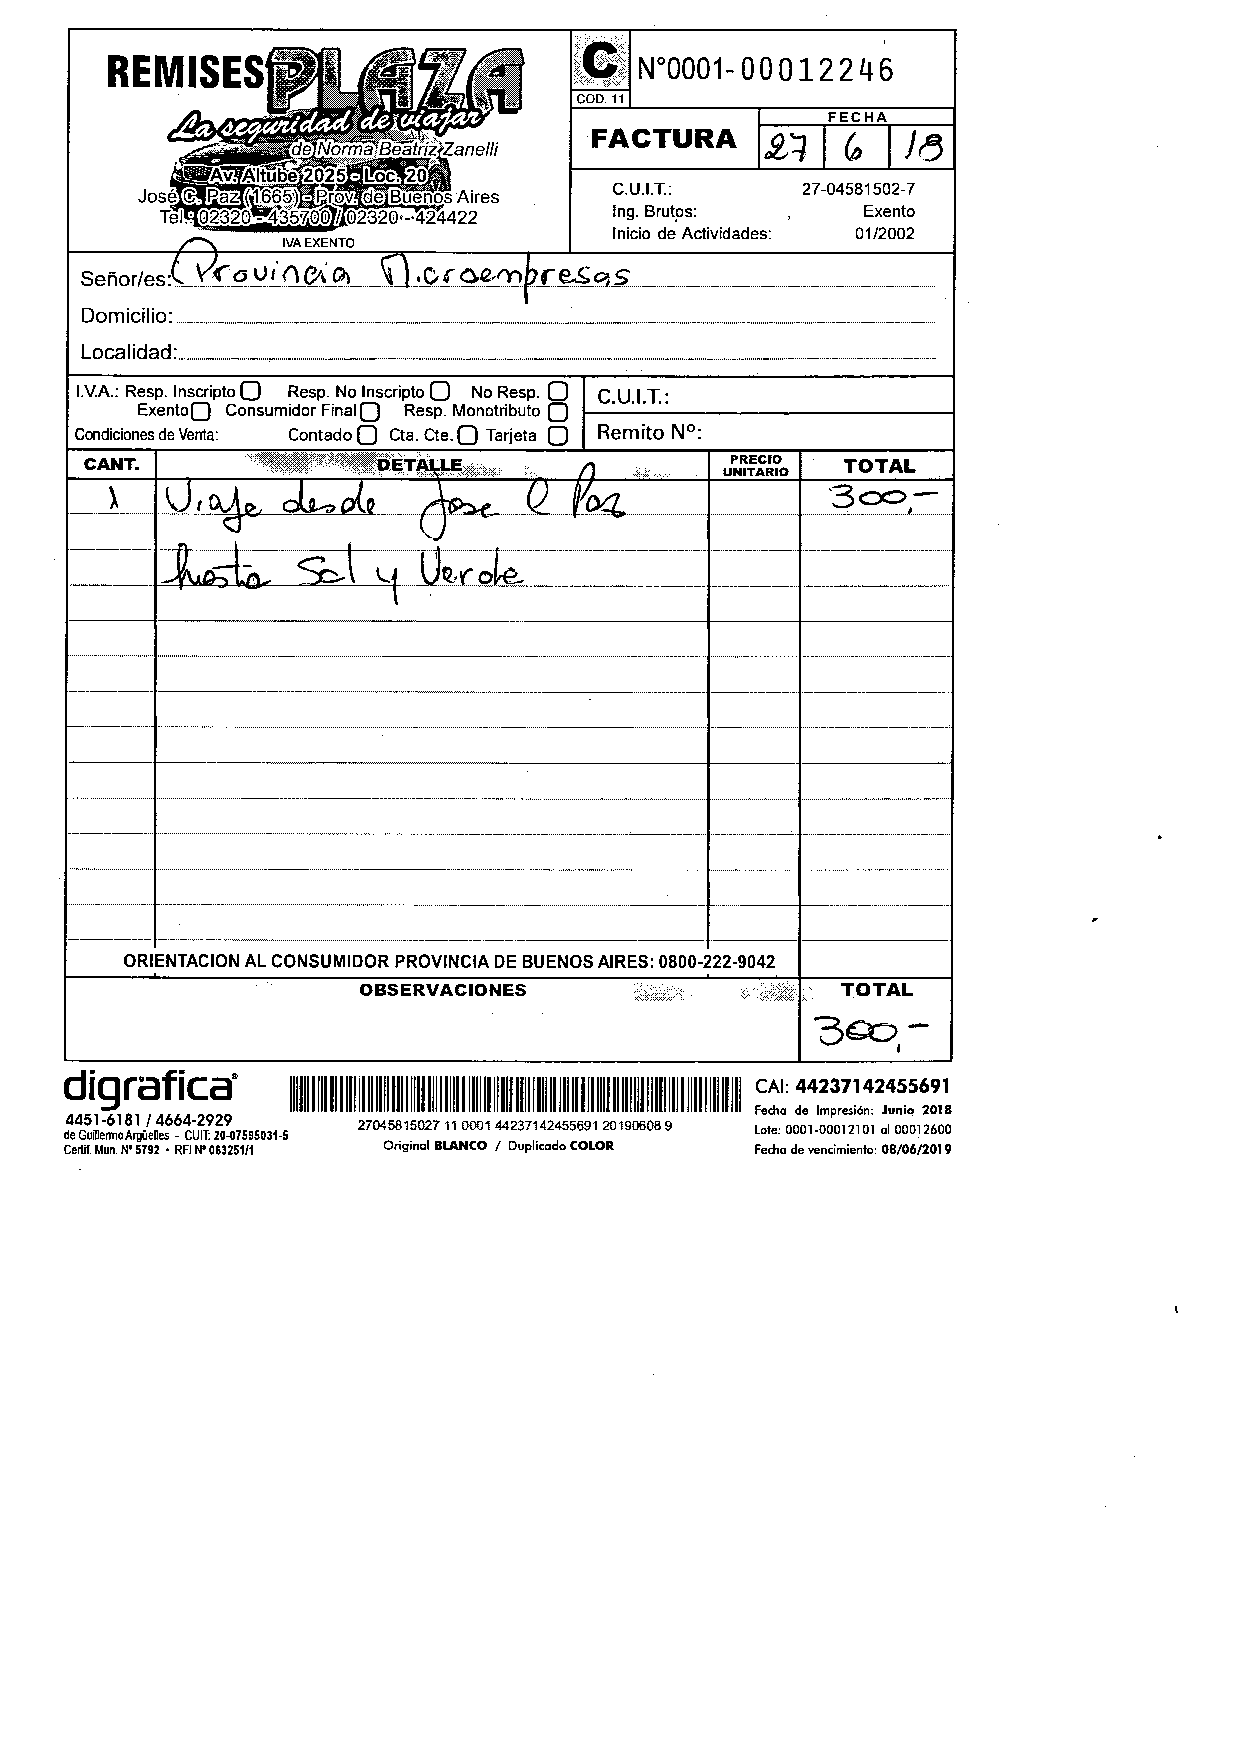 REMISES PLAZA
La seguridad de viajar
de Norma Beatriz Zanelli
Av. Altube 2025 - Loc. 20
José C. Paz (1665) - Prov. de Buenos Aires
Tel.: 02320 - 435700 / 02320 - 424422
IVA EXENTO
C
COD. 11
N°0001-00012246
FACTURA
FECHA
27 6 18
C.U.I.T.: 27-04581502-7
Ing. Brutos: Exento
Inicio de Actividades: 01/2002
Señor/es: Provincia Microempresas
Domicilio:
Localidad:
I.V.A.: Resp. Inscripto Resp. No Inscripto No Resp.
Exento Consumidor Final Resp. Monotributo
Condiciones de Venta: Contado Cta. Cte. Tarjeta
C.U.I.T.:
Remito Nº:
CANT. DETALLE PRECIO UNITARIO TOTAL
1 Viaje desde Jose C Paz 300,-
hasta Sol y Verde
ORIENTACION AL CONSUMIDOR PROVINCIA DE BUENOS AIRES: 0800-222-9042
OBSERVACIONES TOTAL
300,-
digrafica®
4451-6181 / 4664-2929
de Guillermo Argüelles - CUIT: 20-07595031-5
Certif. Mun. N° 5792 • RFI N° 063251/1
27045815027 11 0001 44237142455691 20190608 9
Original BLANCO / Duplicado COLOR
CAI: 44237142455691
Fecha de Impresión: Junio 2018
Lote: 0001-00012101 al 00012600
Fecha de vencimiento: 08/06/2019